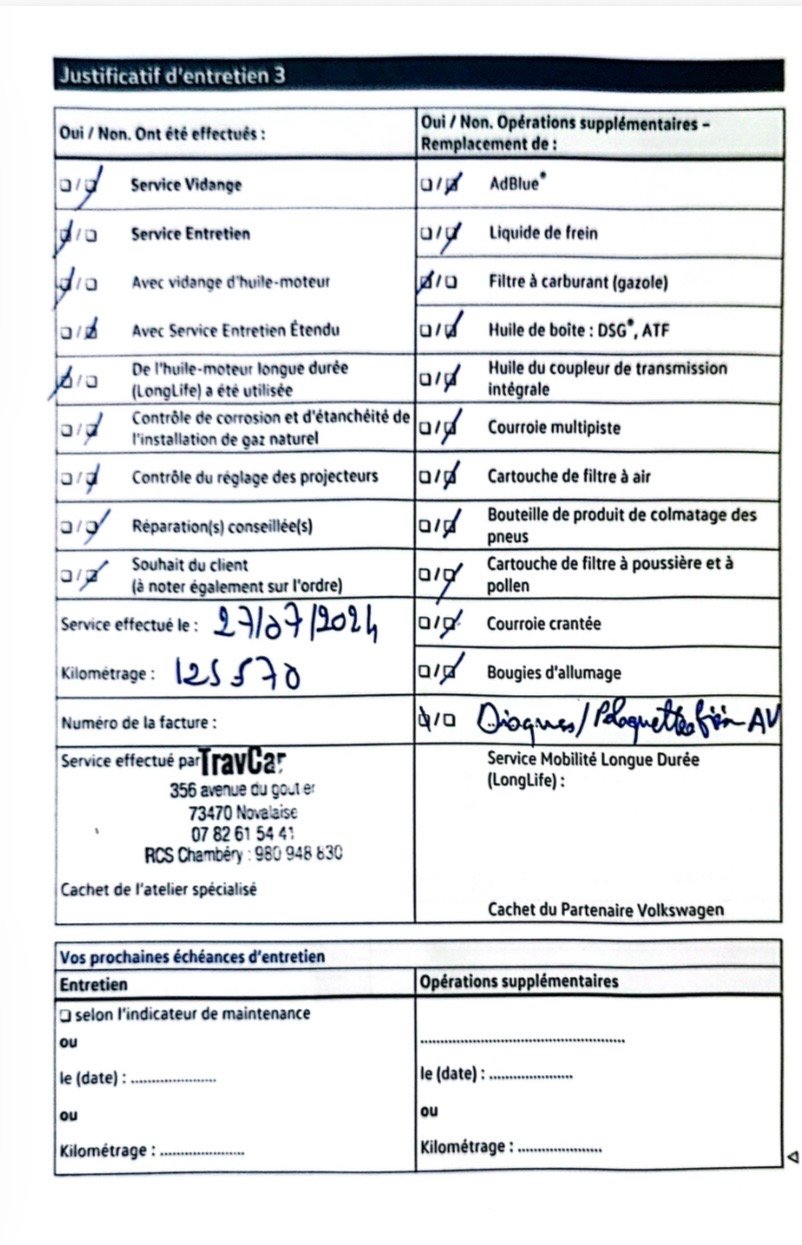 Justificatif d'entretien 3
Oui / Non. Ont été effectués :
☐ / ☑ Service Vidange
☑ / ☐ Service Entretien
☑ / ☐ Avec vidange d'huile-moteur
☐ / ☑ Avec Service Entretien Étendu
☑ / ☐ De l'huile-moteur longue durée
(LongLife) a été utilisée
☐ / ☑ Contrôle de corrosion et d'étanchéité de
l'installation de gaz naturel
☐ / ☑ Contrôle du réglage des projecteurs
☐ / ☑ Réparation(s) conseillée(s)
☐ / ☑ Souhait du client
(à noter également sur l'ordre)
Service effectué le : 27/07/2024
Kilométrage : 125570
Numéro de la facture :
Service effectué par TravCar
356 avenue du gouter
73470 Novalaise
07 82 61 54 41
RCS Chambéry : 980 948 830
Cachet de l'atelier spécialisé
Oui / Non. Opérations supplémentaires –
Remplacement de :
☐ / ☑ AdBlue®
☐ / ☑ Liquide de frein
☑ / ☐ Filtre à carburant (gazole)
☐ / ☑ Huile de boîte : DSG®, ATF
☐ / ☑ Huile du coupleur de transmission
intégrale
☐ / ☑ Courroie multipiste
☐ / ☑ Cartouche de filtre à air
☐ / ☑ Bouteille de produit de colmatage des
pneus
☐ / ☑ Cartouche de filtre à poussière et à
pollen
☐ / ☑ Courroie crantée
☐ / ☑ Bougies d'allumage
☑ / ☐ Disques/Plaquettes frein AV
Service Mobilité Longue Durée
(LongLife) :
Cachet du Partenaire Volkswagen
Vos prochaines échéances d'entretien
Entretien
☐ selon l'indicateur de maintenance
ou
le (date) : ....................
ou
Kilométrage : ....................
Opérations supplémentaires
..................................................
le (date) : ....................
ou
Kilométrage : ....................